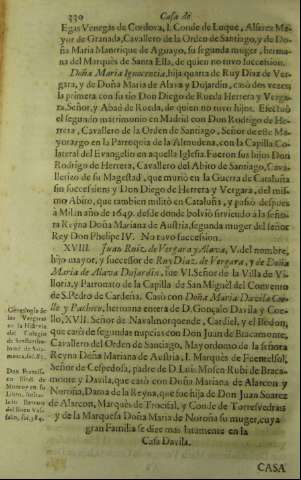 330 Casa de
Egas Venegas de Cordova, I. Conde de Luque, Alferez Ma-
yor de Granada, Cavallero de la Orden de Santiago, y de Do-
ña Maria Manrrique de Aguayo, su segunda muger, herma-
na del Marquès de Santa Ella, de quien no tuvo succession.
Doña Maria Ignocencia, hija quarta de Ruy Diaz de Ver-
gara, y de Doña Maria de Alava y Dojardin, casò dos vezes:
la primera con su tio Don Diego de Rueda Herrera y Verga-
ra, Señor, y Abad de Rueda, de quien no tuvo hijos. Efectuò
el segundo matrimonio en Madrid con Don Rodrigo de He-
rrera, Cavallero de la Orden de Santiago, Señor de este Ma-
yorazgo en la Parroquia de la Almudena, con la Capilla Co-
lateral del Evangelio en aquella Iglesia. Fueron sus hijos Don
Rodrigo de Herrera, Cavallero del Abito de Santiago, Cava-
llerizo de su Magestad, que murió en la Guerra de Cataluña
sin succession; y Don Diego de Herrera y Vergara, del mis-
mo Abito, que tambien militò en Cataluña, y passò despues
à Milàn año de 1649. desde donde bolviò sirviendo à la seño-
ra Reyna Doña Mariana de Austria, segunda muger del señor
Rey Don Phelipe IV. No tuvo succession.
XVIII. Juan Ruiz de Vergara y Alava, V. del nombre,
hijo mayor, y successor de Ruy Diaz de Vergara, y de Doña
Maria de Alava Dojardin, fue VI. Señor de la Villa de Vi-
lloria, y Patronato de la Capilla de San Miguèl del Convento
de S. Pedro de Cardeña. Casò con Doña Maria Davila Coe-
llo y Pacheco, hermana entera de D. Gonçalo Davila y Coe-
llo, XVII. Señor de Navalmorquende, Cardiel, y el Bledon,
que casò de segundas nupcias con Don Juan de Bracamonte,
Cavallero del Orden de Santiago, Mayordomo de la señora
Reyna Doña Mariana de Austria, I. Marquès de Fuentelsol,
Señor de Cespedosa, padre de D. Luis Mosen Rubi de Braca-
monte y Davila, que casò con Doña Mariana de Alarcon y
Noroña, Dama de la Reyna, que fue hija de Don Juan Soarez
de Alarcon, Marquès de Trocifal, y Conde de Torresvedras
y de la Marquesa Doña Maria de Noroña su muger, cuya
gran Familia se dize mas latamente en la
Casa Davila.
CASA